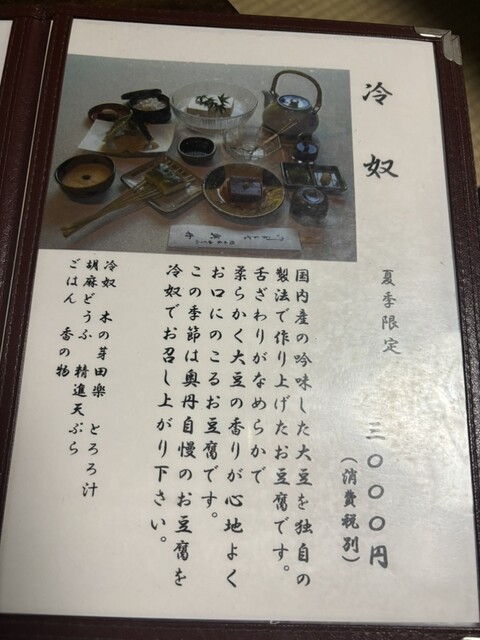 冷奴
夏季限定
三〇〇〇円
（消費税別）
国内産の吟味した大豆を独自の
製法で作り上げたお豆腐です。
舌ざわりがなめらかで
柔らかく大豆の香りが心地よく
お口にのこるお豆腐です。
この季節は奥丹自慢のお豆腐を
冷奴でお召し上がり下さい。
冷奴 木の芽田楽 とろろ汁
胡麻どうふ 精進天ぷら
ごはん 香の物